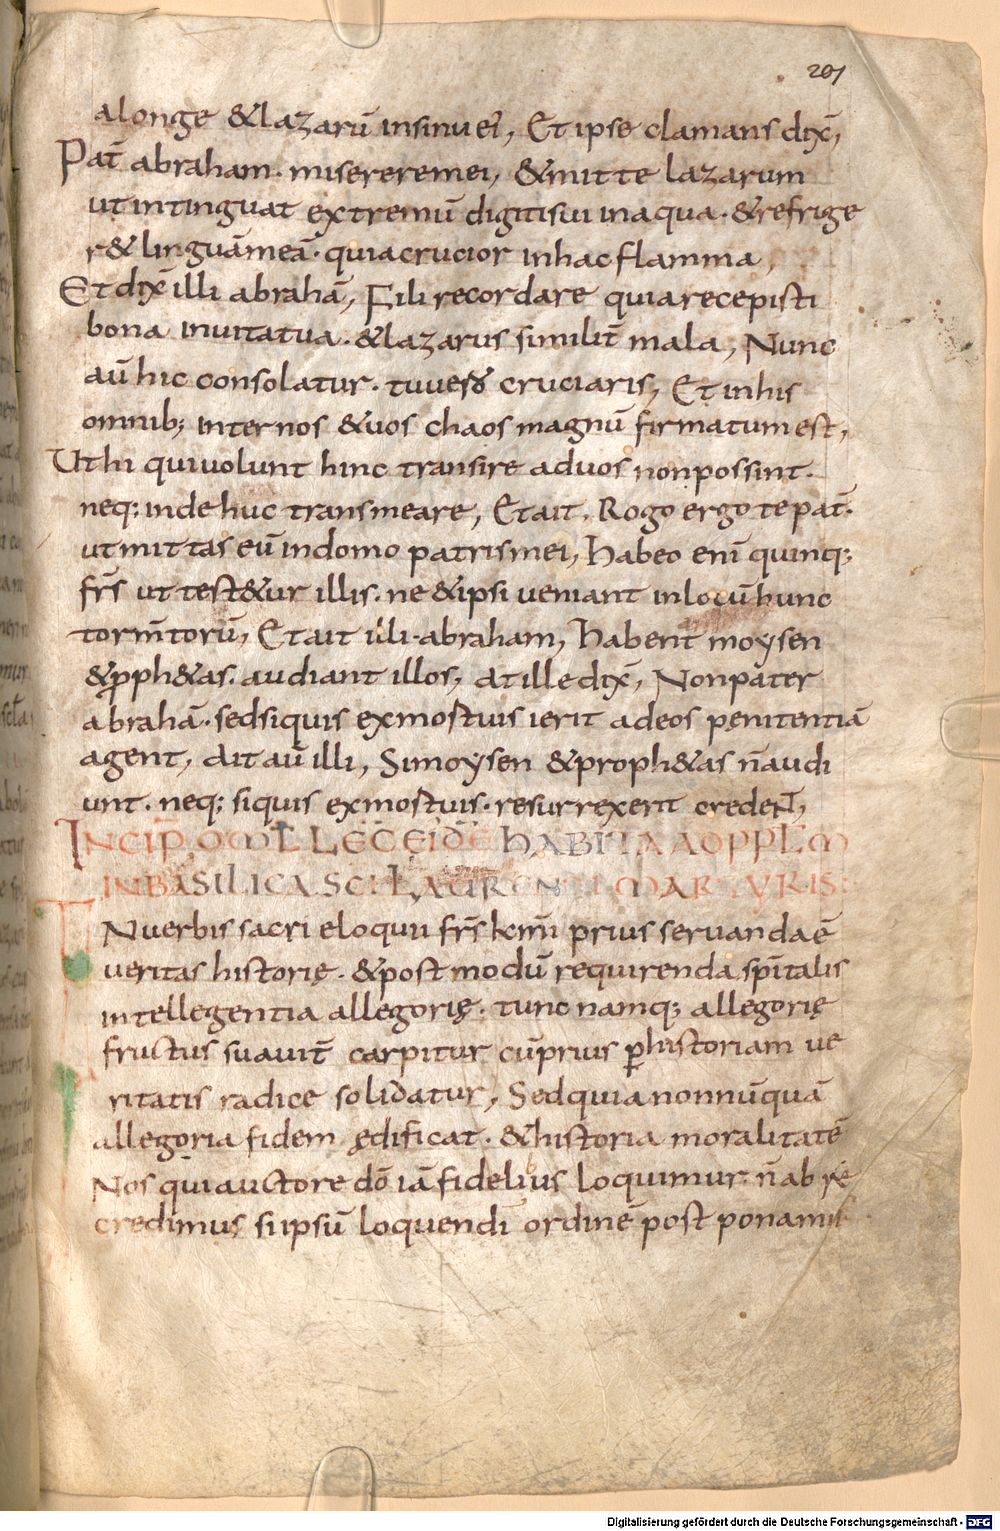 201
alonge &lazarū insinu ei', Et ipse clamans dix̄,
Pat̄ abraham. misereremei, &mitte lazarum
ut intinguat extremū digitisui inaqua. &refrige
r& linguāmeā. quiacrucior inhac flamma,
Et dix̄ illi abrahā, Fili recordare quiarecepisti
bona inuitatua. &lazarus similit̄ mala, Nunc
aū hic consolatur. tuuero cruciaris, Et inhis
omnib; internos &uos chaos magnū firmatumest,
Uthi quiuolunt hinc transire aduos nonpossint.
neq; indehuc transmeare, Etait. Rogo ergo te pat̄.
utmittas eū indomo patrismei, habeo enī quinq;
frs̄ ut test&ur illis. ne &ipsi ueniant inlocū hunc
torm̄torū, Etait illi abraham, habent moysen
&pph&as. audiant illos, at ille dix̄, Nonpater
abrahā. sedsiquis exmortuis ierit adeos penitentiā
agent, ait aū illi, Simoysen &proph&as n̄audi
unt. neq; siquis exmortuis. resurrexerit credent,
INCIP OML LEC EIDE HABITA AD PPLM
IN BASILICA SCI LAURENTII MARTYRIS
IN uerbis sacri eloquii frs̄ km̄i prius seruandaē
ueritas historię. &post modū requirenda spītalis
intellegentia allegorię. tunc namq; allegorię
fructus suauit̄ carpitur cūprius phistoriam ue
ritatis radice solidatur, Sedquia nonnūquā
allegoria fidem ędificat. &historia moralitatē
Nos quiauctore dō iā fidelibus loquimur n̄ab re
credimus si ipsū loquendi ordinē post ponamus
Digitalisierung gefördert durch die Deutsche Forschungsgemeinschaft - DFG